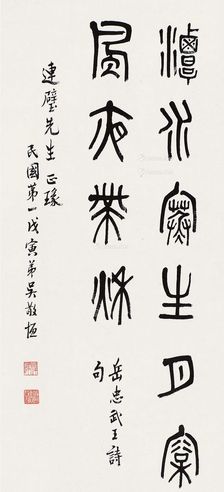 潭水寒生月松
風夜帶秋
岳忠武王詩
句
連璧先生正瑑
民國第一戊寅弟吳敬恆